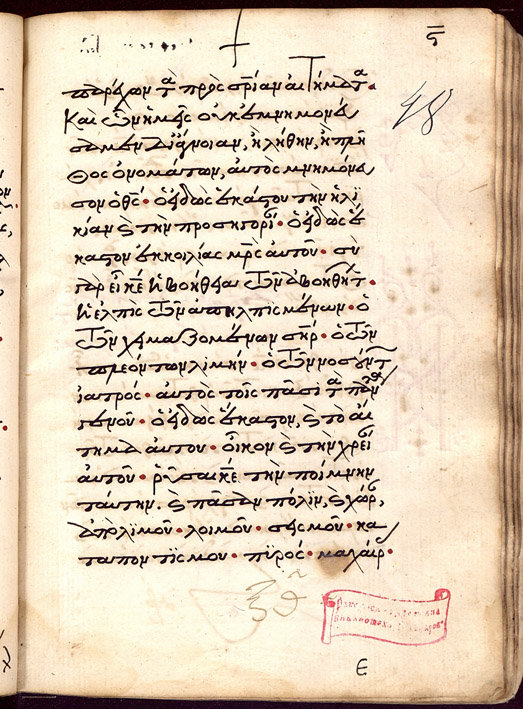 ς
48
παρέχων τὰ πρὸς σρίαν αἰτήματα.
Καὶ ὧν ἡμεῖς οὐκ ἐμνημονεύ
σαμεν δι ἄγνοιαν, ἢ λήθην, ἢ πλῆ
θος ὀνομάτων, αὐτὸς μνημόνευ
σον ὁ θς· ὁ εἰδὼς ἑκάστου τὴν ἡλι
κίαν ϗ τὴν προσηγορί· ὁ εἰδὼς ἕ
καστον ἐκ κοιλίας μρς αὐτοῦ· σὺ
γὰρ εἶ κε ἡ βοήθεια τῶν ἀβοηθήτ·
ἡ ἐλπὶς τῶν ἀπηλπισμένων· ὁ
τῶν χειμαζομένων σηρ· ὁ τῶν
πλεόντων λιμήν· ὁ τῶν νοσούντ
ἰατρός· αὐτὸς τοῖς πᾶσι τὰ πάντα
γενοῦ· ὁ εἰδὼς ἕκαστον, ϗ τὸ αἴ
τημα αὐτοῦ· οἶκον ϗ τὴν χρεί
αὐτοῦ· ῥῦσαι κε τὴν ποίμνην
ταύτην. ϗ πᾶσαν πόλιν, ϗ χώρ,
ἀπὸ λιμοῦ· λοιμοῦ· σεισμοῦ· κα
ταποντισμοῦ· πυρός· μαχαίρ·
ε